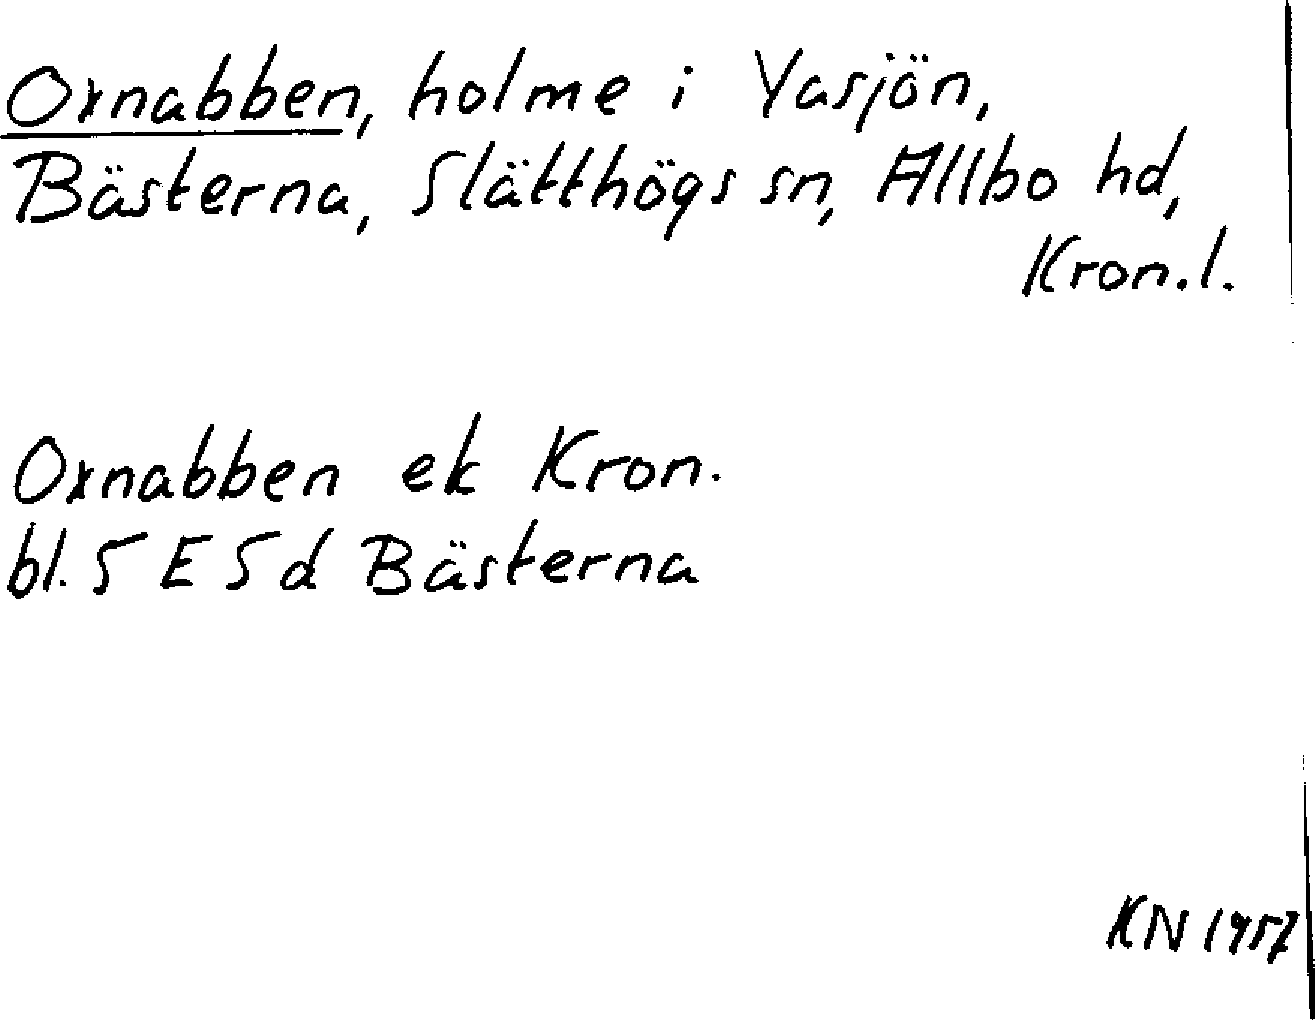 Oxnabben, holme i Yasjön,
Bästerna, Slätthögs sn, Allbo hd,
Kron.l.
Oxnabben ek Kron.
bl. 5 E 5 d Bästerna
KN 1957